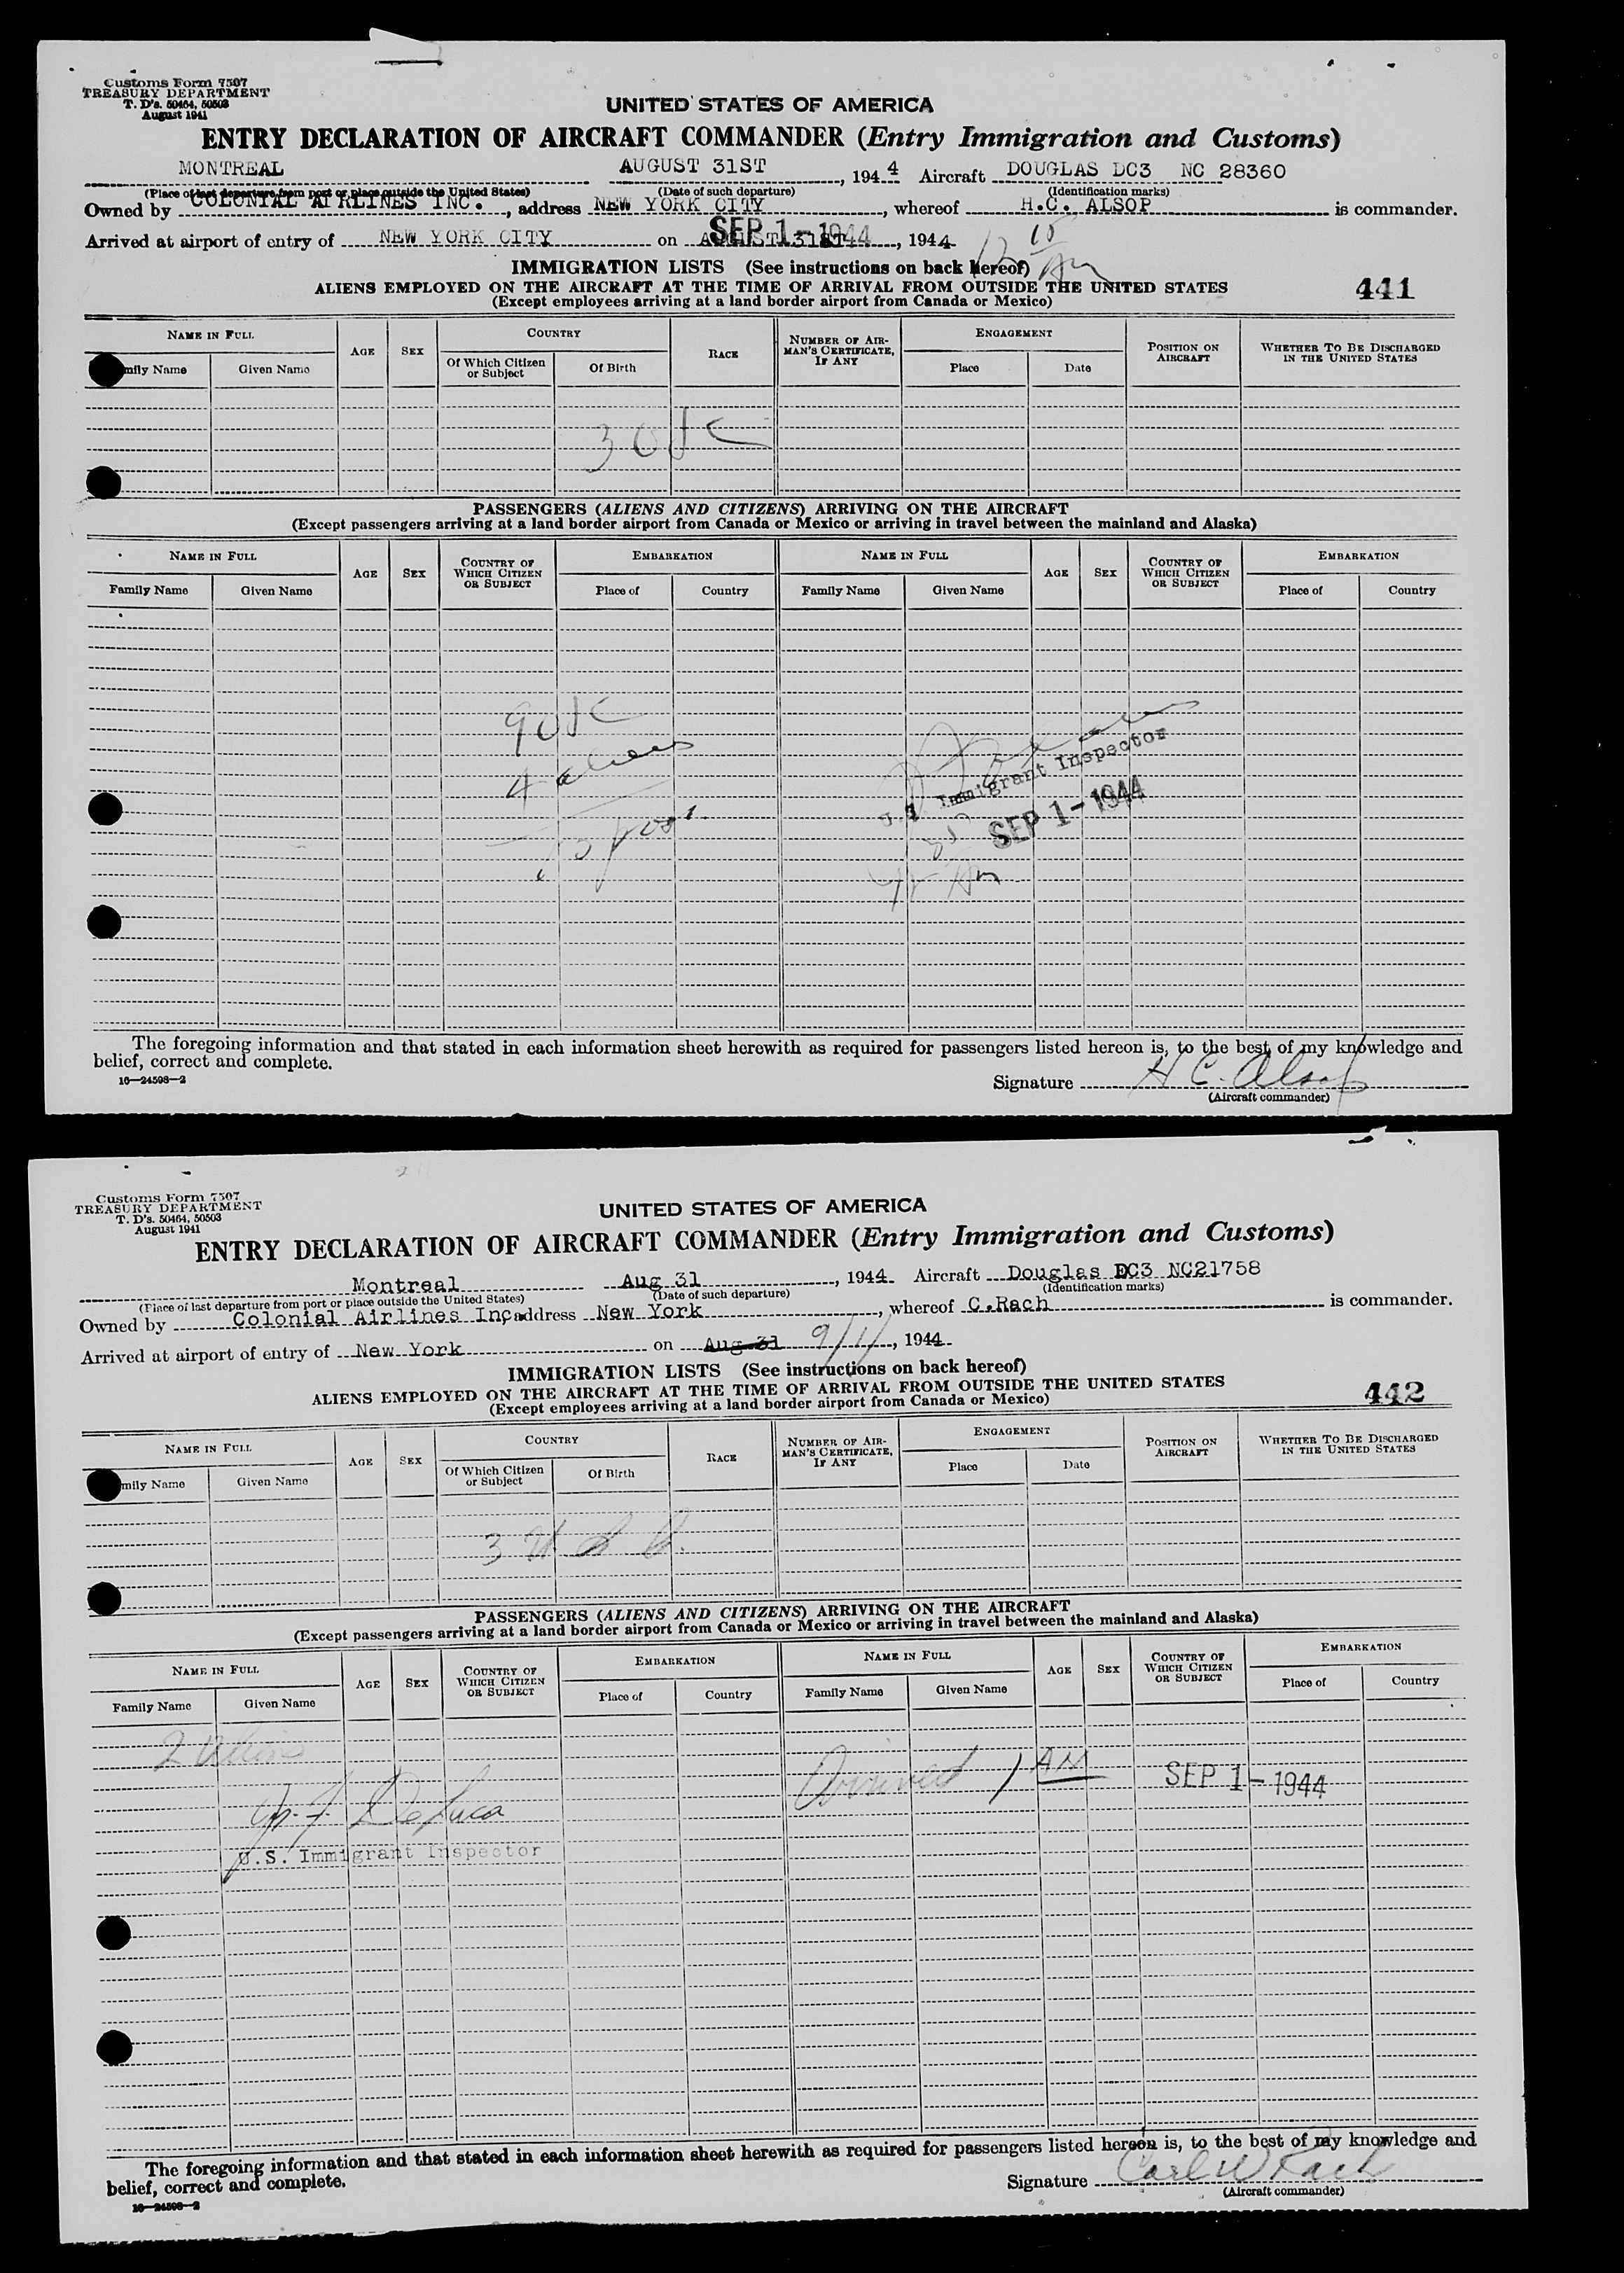 Customs Form 7507
TREASURY DEPARTMENT
T. D's. 50464, 50503
August 1941
UNITED STATES OF AMERICA
ENTRY DECLARATION OF AIRCRAFT COMMANDER (Entry Immigration and Customs)
MONTREAL AUGUST 31ST, 1944 Aircraft DOUGLAS DC3 NC 28360
(Place of last departure from port or place outside the United States) (Date of such departure) (Identification marks)
Owned by COLONIAL AIRLINES INC., address NEW YORK CITY, whereof H.C. ALSOP is commander.
Arrived at airport of entry of NEW YORK CITY on AUGUST 31ST SEP 1-1944, 1944 12 15 AM
IMMIGRATION LISTS (See instructions on back hereof)
ALIENS EMPLOYED ON THE AIRCRAFT AT THE TIME OF ARRIVAL FROM OUTSIDE THE UNITED STATES
(Except employees arriving at a land border airport from Canada or Mexico)
441
NAME IN FULL AGE SEX COUNTRY RACE NUMBER OF AIRMAN'S CERTIFICATE, IF ANY ENGAGEMENT POSITION ON AIRCRAFT WHETHER TO BE DISCHARGED IN THE UNITED STATES
mily Name Given Name Of Which Citizen or Subject Of Birth Place Date
3 USC
PASSENGERS (ALIENS AND CITIZENS) ARRIVING ON THE AIRCRAFT
(Except passengers arriving at a land border airport from Canada or Mexico or arriving in travel between the mainland and Alaska)
NAME IN FULL AGE SEX COUNTRY OF WHICH CITIZEN OR SUBJECT EMBARKATION NAME IN FULL AGE SEX COUNTRY OF WHICH CITIZEN OR SUBJECT EMBARKATION
Family Name Given Name Place of Country Family Name Given Name Place of Country
9 USC
4 aliens
13
Immigrant Inspector
SEP 1-1944
AM
The foregoing information and that stated in each information sheet herewith as required for passengers listed hereon is, to the best of my knowledge and
belief, correct and complete.
16—24598—2
Signature H C. Alsop
(Aircraft commander)
Customs Form 7507
TREASURY DEPARTMENT
T. D's. 50464, 50503
August 1941
UNITED STATES OF AMERICA
ENTRY DECLARATION OF AIRCRAFT COMMANDER (Entry Immigration and Customs)
Montreal Aug 31, 1944 Aircraft Douglas DC3 NC21758
(Place of last departure from port or place outside the United States) (Date of such departure) (Identification marks)
Owned by Colonial Airlines Inc, address New York, whereof C.Rach is commander.
Arrived at airport of entry of New York on Aug 31 9/1/, 1944
IMMIGRATION LISTS (See instructions on back hereof)
ALIENS EMPLOYED ON THE AIRCRAFT AT THE TIME OF ARRIVAL FROM OUTSIDE THE UNITED STATES
(Except employees arriving at a land border airport from Canada or Mexico)
442
NAME IN FULL AGE SEX COUNTRY RACE NUMBER OF AIRMAN'S CERTIFICATE, IF ANY ENGAGEMENT POSITION ON AIRCRAFT WHETHER TO BE DISCHARGED IN THE UNITED STATES
mily Name Given Name Of Which Citizen or Subject Of Birth Place Date
3 U S C.
PASSENGERS (ALIENS AND CITIZENS) ARRIVING ON THE AIRCRAFT
(Except passengers arriving at a land border airport from Canada or Mexico or arriving in travel between the mainland and Alaska)
NAME IN FULL AGE SEX COUNTRY OF WHICH CITIZEN OR SUBJECT EMBARKATION NAME IN FULL AGE SEX COUNTRY OF WHICH CITIZEN OR SUBJECT EMBARKATION
Family Name Given Name Place of Country Family Name Given Name Place of Country
2 Aliens
Arrived 1 AM SEP 1-1944
De Luca
U.S. Immigrant Inspector
The foregoing information and that stated in each information sheet herewith as required for passengers listed hereon is, to the best of my knowledge and
belief, correct and complete.
16—24598—2
Signature Carl W Rach
(Aircraft commander)